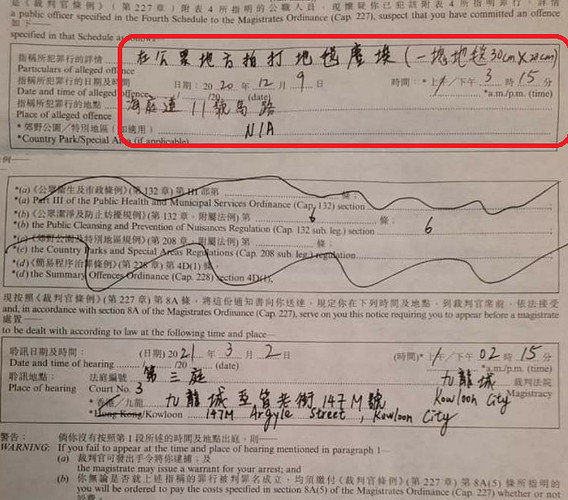 是《裁判官條例》(第 227 章) 附表 4 所指明的公職人員，現懷疑你已犯該附表 4 所指明罪行，詳情
a public officer specified in the Fourth Schedule to the Magistrates Ordinance (Cap. 227), suspect that you have committed an offence
如下——
specified in that Schedule as follows—
指稱所犯罪行的詳情： 在公眾地方拍打地毯塵埃 (一塊地毯30cm×20cm)
Particulars of alleged offence
指稱所犯罪行的日期及時間 日期：2020 年 12 月 9 日 時間：*上午／下午 3 時 15 分
Date and time of alleged offence / /20 (date) *a.m./p.m. (time)
指稱所犯罪行的地點 海庭道 11號馬路
Place of alleged offence
*郊野公園／特別地區 (如適用) N/A
*Country Park/Special Area (if applicable)
例——
*(a)《公眾衞生及市政條例》(第 132 章) 第 III 部第 條；
*(a) Part III of the Public Health and Municipal Services Ordinance (Cap. 132) section
*(b)《公眾潔淨及防止妨擾規例》(第 132 章，附屬法例) 第 6 條；
*(b) the Public Cleansing and Prevention of Nuisances Regulation (Cap. 132 sub. leg.) section 6
*(c)《郊野公園及特別地區規例》(第 208 章，附屬法例) 第 條；
*(c) the Country Parks and Special Areas Regulations (Cap. 208 sub. leg.) regulation
*(d)《簡易程序治罪條例》(第 228 章) 第 4D(1) 條，
*(d) the Summary Offences Ordinance (Cap. 228) section 4D(1),
現按照《裁判官條例》(第 227 章) 第 8A 條，將這份通知書向你送達，規定你在下列時間及地點，到裁判官席前，依法接受
and, in accordance with section 8A of the Magistrates Ordinance (Cap. 227), serve on you this notice requiring you to appear before a magistrate
處置——
to be dealt with according to law at the following time and place—
聆訊日期及時間： (日期) 2021 年 3 月 2 日 (時間)*上午／下午 02 時 15 分
Date and time of hearing /20 (date) *a.m./p.m. (time)
聆訊地點： 法庭編號 第三庭 九龍城 裁判法院
Place of hearing Court No. 3 Kowloon City Magistracy
*香港／九龍 九龍城亞皆老街147M號
*Hong Kong/Kowloon 147M Argyle Street, Kowloon City
警告： 倘你沒有按照第 1 段所述的時間及地點出庭，則——
WARNING: If you fail to appear at the time and place of hearing mentioned in paragraph 1—
(a) 裁判官可發出手令將你逮捕；及
the magistrate may issue a warrant for your arrest; and
(b) 你無論是否就上述指稱的罪行被判罪名成立，均須繳付《裁判官條例》(第 227 章) 第 8A(5) 條所指明的
you will be ordered to pay the costs specified in section 8A(5) of the Magistrates Ordinance (Cap. 227) whether or not